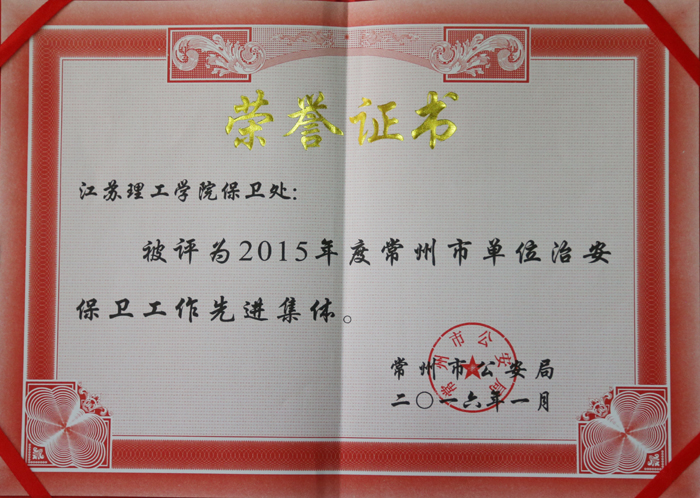 荣誉证书
江苏理工学院保卫处：
被评为2015年度常州市单位治安
保卫工作先进集体。
常州市公安局
二〇一六年一月
常州市公安局